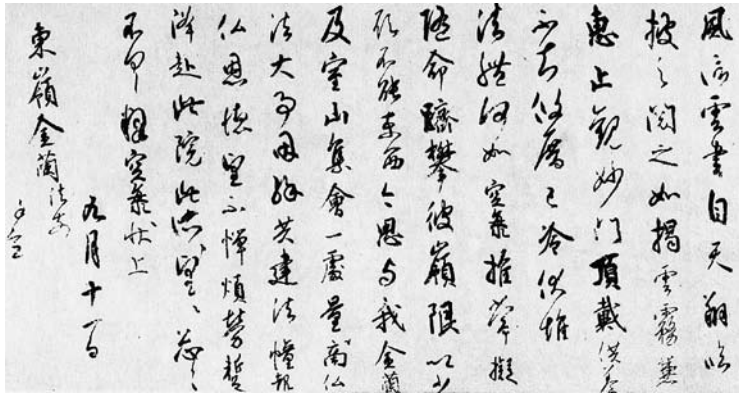 風信雲書自天翔臨
披之閱之如揭雲霧兼
惠止觀妙門頂戴供養
不知攸厝已冷伏惟
法體何如空海推常擬
隨命躋攀彼嶺限以少
願不能東西今思与我金蘭
及室山集會一處量商仏
法大事因緣共建法幢報
仏恩德望不憚煩勞蹔
降赴此院此所望々忩々
不具釋空海狀上
九月十一日
東嶺金蘭法前
謹空